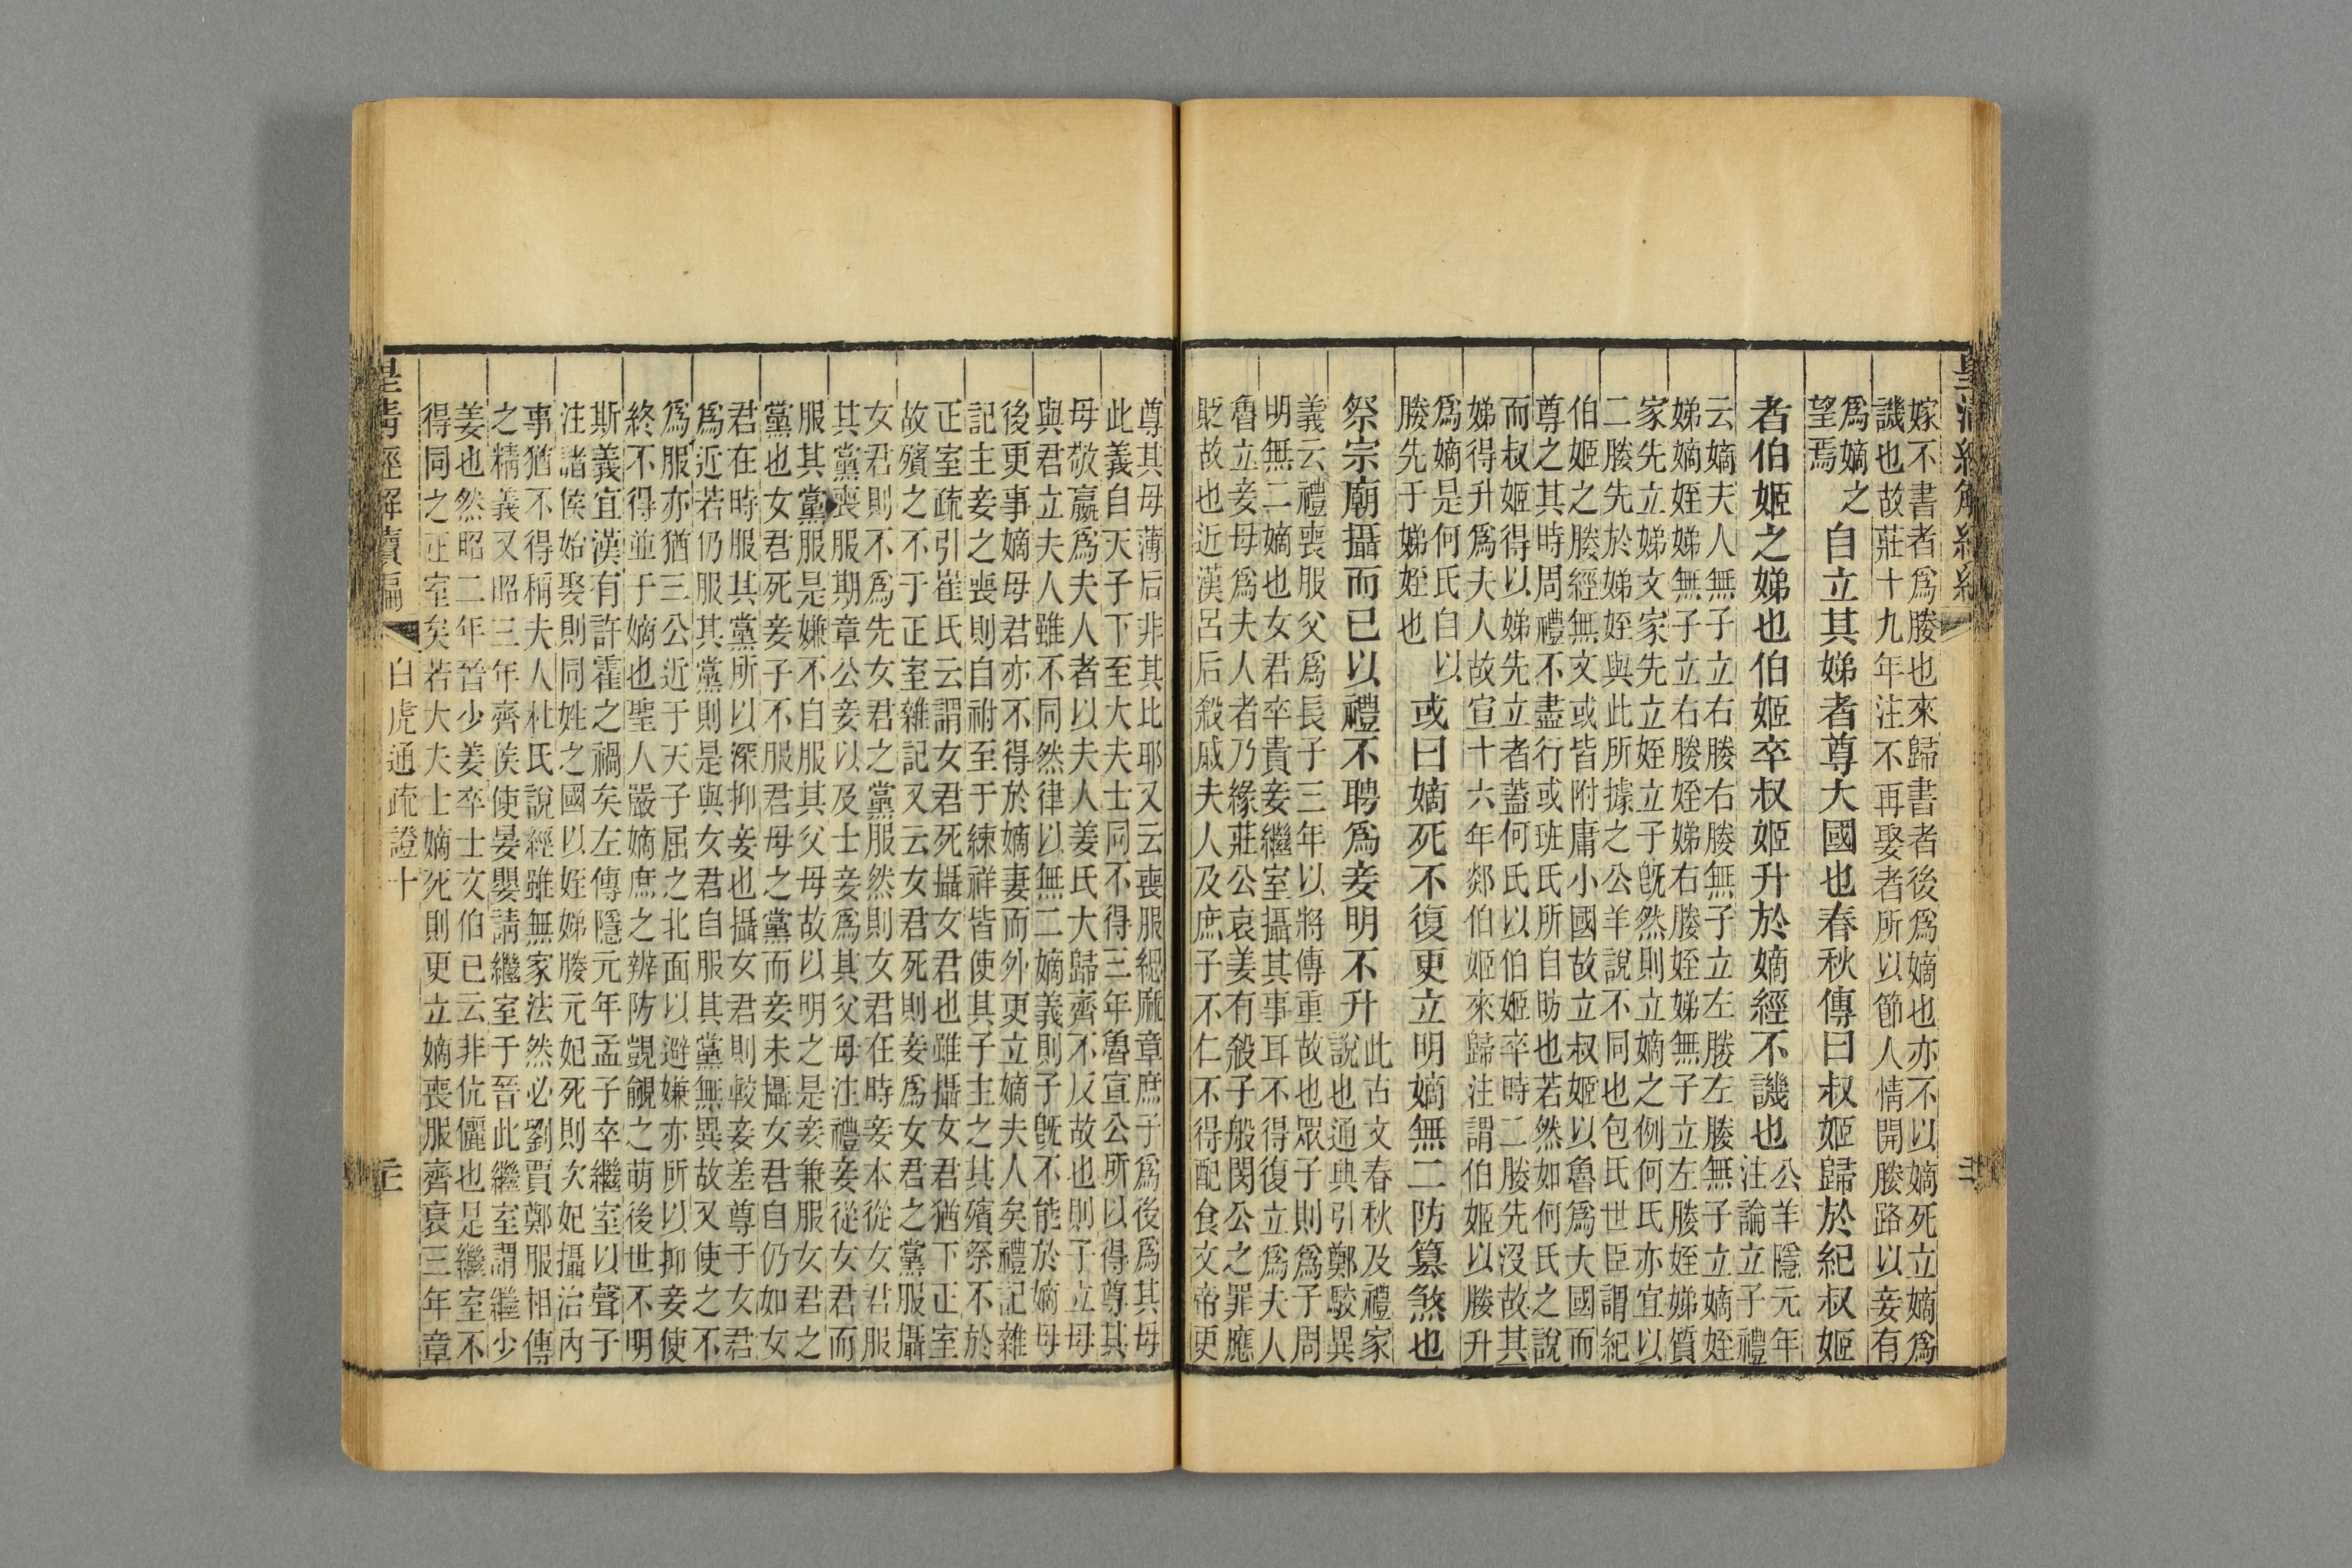 嫁不書者爲媵也來歸書者後爲嫡也亦不以嫡死立嫡爲
譏也故莊十九年注不再娶者所以節人情開媵路以妾有
爲嫡之
望焉
自立其娣者尊大國也春秋傳曰叔姬歸於紀叔姬
者伯姬之娣也伯姬卒叔姬升於嫡經不譏也
公羊隱元年
注論立子禮
云嫡夫人無子立右媵右媵無子立左媵左媵無子立嫡姪
娣嫡姪娣無子立右媵姪娣右媵姪娣無子立左媵姪娣質
家先立娣文家先立姪立子旣然則立嫡之例何氏亦宜以
二媵先於娣姪與此所據之公羊說不同也包氏世臣謂紀
伯姬之媵經無文或皆附庸小國故立叔姬以魯爲大國而
尊之其時周禮不盡行或班氏所自昉也若然如何氏之說
而叔姬得以娣先立者蓋何氏以伯姬卒時二媵先沒故其
娣得升爲夫人故宣十六年郯伯姬來歸注謂伯姬以媵升
爲嫡是何氏自以
媵先于娣姪也
或曰嫡死不復更立明嫡無二防篡煞也
祭宗廟攝而已以禮不聘爲妾明不升
此古文春秋及禮家
說也通典引鄭駮異
義云禮喪服父爲長子三年以將傳重故也眾子則爲子周
明無二嫡也女君卒貴妾繼室攝其事耳不得復立爲夫人
魯立妾母爲夫人者乃緣莊公哀姜有殺子般閔公之罪應
貶故也近漢呂后殺戚夫人及庶子不仁不得配食文帝更
尊其母薄后非其比耶又云喪服緦麻章庶子爲後爲其母
此義自天子下至大夫士同不得三年魯宣公所以得尊其
母敬嬴爲夫人者以夫人姜氏大歸齊不反故也則子立母
與君立夫人雖不同然律以無二嫡義則子旣不能於嫡母
後更事嫡母君亦不得於嫡妻而外更立嫡夫人矣禮記雜
記主妾之喪則自祔至于練祥皆使其子主之其殯祭不於
正室疏引崔氏云謂女君死攝女君也雖攝女君猶下正室
故殯之不于正室雜記又云女君死則妾爲女君之黨服攝
女君則不爲先女君之黨服然則女君在時妾本從女君服
其黨喪服期章公妾以及士妾爲其父母注禮妾從女君而
服其黨服是嫌不自服其父母故以明之是妾兼服女君之
黨也女君死妾子不服君母之黨而妾未攝女君自仍如女
君在時服其黨所以深抑妾也攝女君則較妾差尊于女君
爲近若仍服其黨則是與女君自服其黨無異故又使之不
爲服亦猶三公近于天子屈之北面以避嫌亦所以抑妾使
終不得並于嫡也聖人嚴嫡庶之辨防覬覦之萌後世不明
斯義宜漢有許霍之禍矣左傳隱元年孟子卒繼室以聲子
注諸侯始娶則同姓之國以姪娣媵元妃死則次妃攝治內
事猶不得稱夫人杜氏說經雖無家法然必劉賈鄭服相傳
之精義又昭三年齊侯使晏嬰請繼室于晉此繼室謂繼少
姜也然昭二年晉少姜卒士文伯已云非伉儷也是繼室不
得同之正室矣若大夫士嫡死則更立嫡喪服齊衰三年章
皇清經解續編 白虎通疏證十